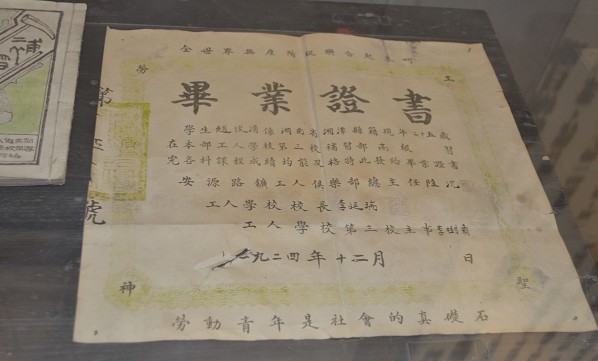 全世界無產階級聯合起來呵
勞 工
畢業證書
學生趙俊清係湖南省湘潭縣籍現年廿五歲
在本部工人學校第三校補習部高級 習
完各科課程成績均能及格特此發給畢業證書
安源路鑛工人俱樂部總主任陸沉
工人學校校長李廷瑞
工人學校第三校主事李
一九二四年十二月 日
神 聖
勞動青年是社會的真礎石
第 號